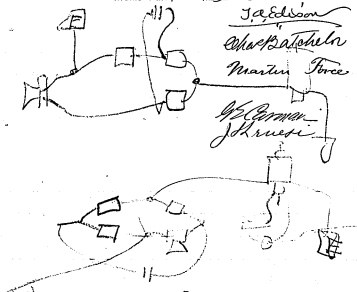 T. A. Edison
Chas Batchelor
Martin Force
W S Carman
J Kruesi